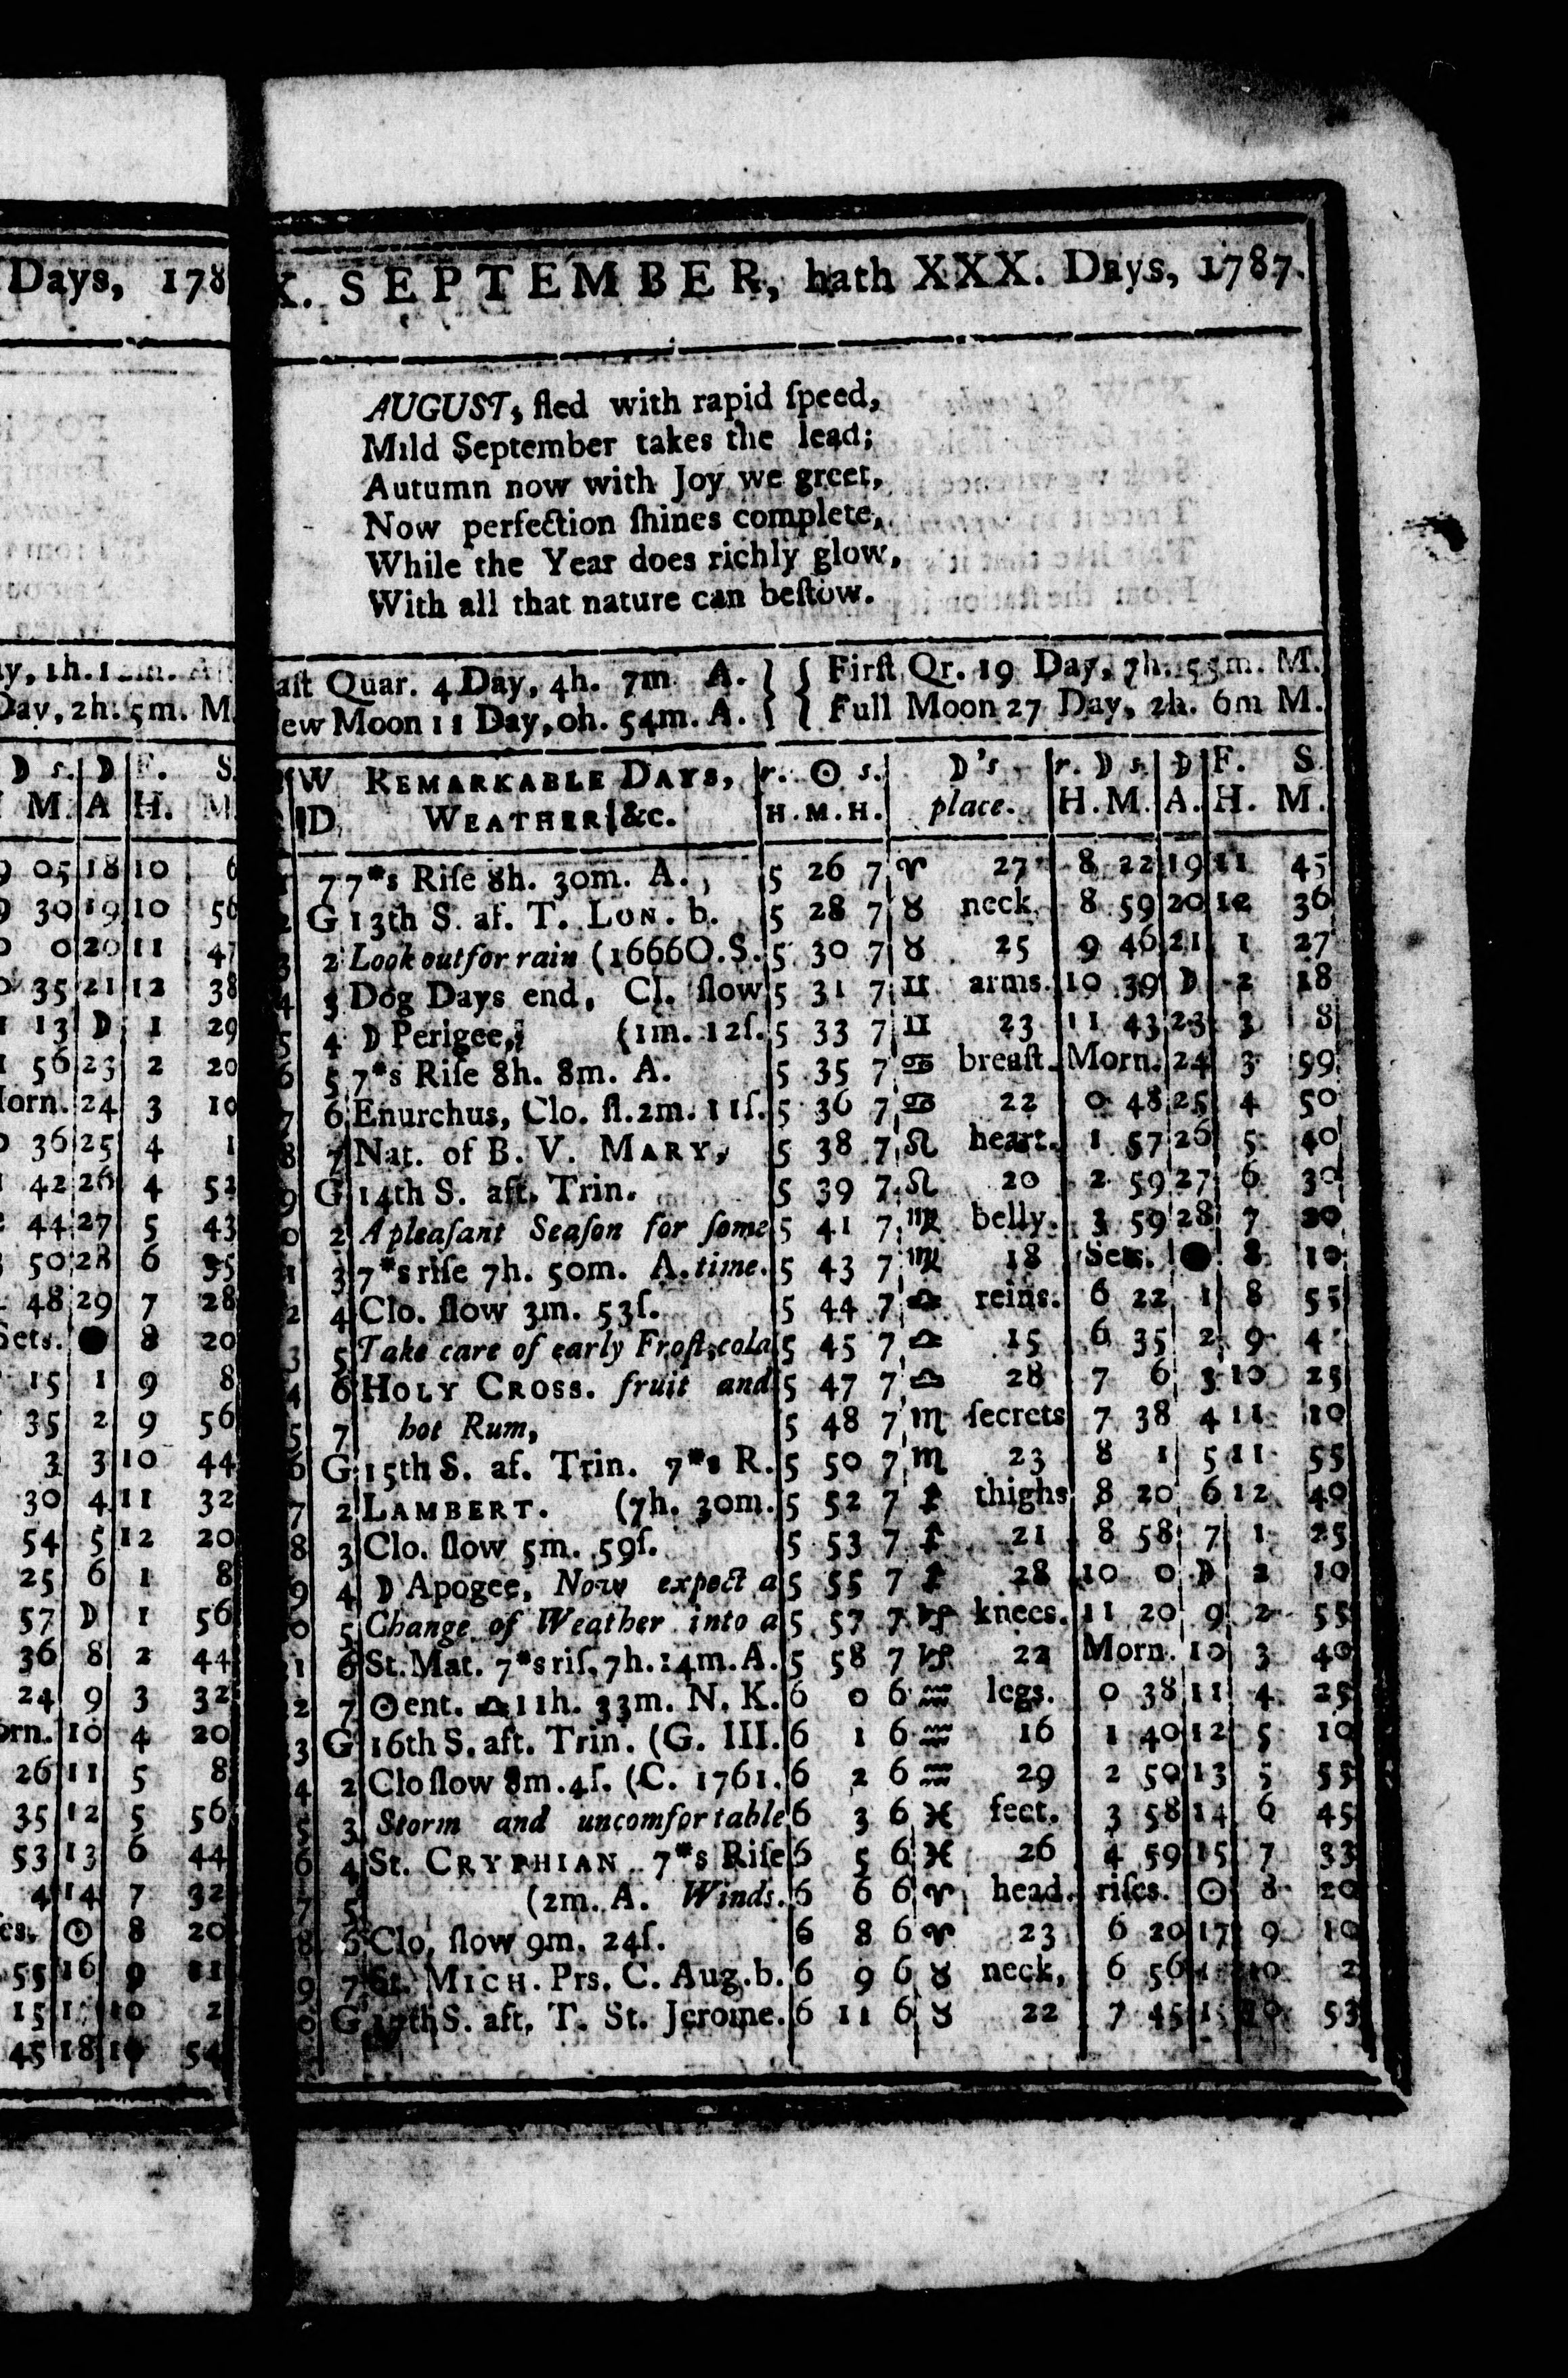 Days, 178
y, 1h. 12m. A
Day, 2h. 5m. M.
D s. D F. S.
M. A H. M
9 05 18 10 6
9 30 19 10 56
0 0 20 11 47
0 35 21 12 38
1 13 D 1 29
1 56 23 2 20
orn. 24 3 10
0 36 25 4 1
42 26 4 52
44 27 5 43
50 28 6 35
48 29 7 28
Sets. ● 8 20
15 1 9 8
35 2 9 56
3 3 10 44
30 4 11 32
54 5 12 20
25 6 1 8
57 D 1 56
36 8 2 44
24 9 3 32
orn. 10 4 20
26 11 5 8
35 12 5 56
53 13 6 44
4 14 7 32
es. ☉ 8 20
55 16 9 11
15 1 10 2
45 18 10 54
X. SEPTEMBER, hath XXX. Days, 1787.
AUGUST, fled with rapid ſpeed,
Mild September takes the lead;
Autumn now with Joy we greet,
Now perfection ſhines complete,
While the Year does richly glow,
With all that nature can beſtow.
aſt Quar. 4 Day, 4h. 7m A. } { Firſt Qr. 19 Day, 7h. 55m. M.
ew Moon 11 Day, 0h. 54m. A. } { Full Moon 27 Day, 2h. 6m M.
W REMARKABLE DAYS, r. ☉ s. D's r. D s. D F. S.
D WEATHER &c. H. M. H. place. H. M. A. H. M.
1 7 7*s Riſe 8h. 30m. A., 5 26 7 ♈ 27 8 22 19 11 45
2 G 13th S. af. T. LON. b. 5 28 7 ♉ neck. 8 59 20 12 36
3 2 Look out for rain (1666 O.S. 5 30 7 ♉ 25 9 46 21 1 27
4 3 Dog Days end, Cl. ſlow 5 31 7 ♊ arms. 10 39 D 2 18
5 4 D Perigee, (1m. 12ſ. 5 33 7 ♊ 23 11 43 23 3 8
6 5 7*s Riſe 8h. 8m. A. 5 35 7 ♋ breaſt. Morn. 24 3 59
7 6 Enurchus, Clo. ſl. 2m. 11ſ. 5 36 7 ♋ 22 0 48 25 4 50
8 7 Nat. of B. V. MARY, 5 38 7 ♌ heart. 1 57 26 5 40
9 G 14th S. aft. Trin. 5 39 7 ♌ 20 2 59 27 6 30
0 2 A pleaſant Seaſon for ſome 5 41 7 ♍ belly. 3 59 28 7 20
1 3 7*s riſe 7h. 50m. A. time. 5 43 7 ♍ 18 Sets. ● 8 10
2 4 Clo. ſlow 3m. 53ſ. 5 44 7 ♎ reins. 6 22 1 8 55
3 5 Take care of early Froſt, cold 5 45 7 ♎ 15 6 35 2 9 4
4 6 HOLY CROSS. fruit and 5 47 7 ♎ 28 7 6 3 10 25
5 7 hot Rum, 5 48 7 ♏ ſecrets 7 38 4 11 10
6 G 15th S. af. Trin. 7*s R. 5 50 7 ♏ 23 8 1 5 11 55
7 2 LAMBERT. (7h. 30m. 5 52 7 ♐ thighs 8 20 6 12 40
8 3 Clo. ſlow 5m. 59ſ. 5 53 7 ♐ 21 8 58 7 1 25
9 4 D Apogee, Now expect a 5 55 7 ♐ 28 10 0 D 2 10
0 5 Change of Weather into a 5 57 7 ♑ knees. 11 20 9 2 55
1 6 St. Mat. 7*s riſ. 7h. 14m. A. 5 58 7 ♑ 22 Morn. 10 3 40
2 7 ☉ ent. ♎ 11h. 33m. N. K. 6 0 6 ♒ legs. 0 38 11 4 25
3 G 16th S. aft. Trin. (G. III. 6 1 6 ♒ 16 1 40 12 5 10
4 2 Clo ſlow 8m. 4ſ. (C. 1761. 6 2 6 ♒ 29 2 50 13 5 55
5 3 Storm and uncomfortable 6 3 6 ♓ feet. 3 58 14 6 45
6 4 St. CRYPHIAN 7*s Riſe 6 5 6 ♓ 26 4 59 15 7 33
7 5 (2m. A. Winds. 6 6 6 ♈ head. riſes. ☉ 8 20
8 6 Clo, ſlow 9m. 24ſ. 6 8 6 ♈ 23 6 20 17 9 10
9 7 St. MICH. Prs. C. Aug. b. 6 9 6 ♉ neck, 6 56 10 2
0 G 17th S. aft. T. St. Jerome. 6 11 6 ♉ 22 7 45 10 53